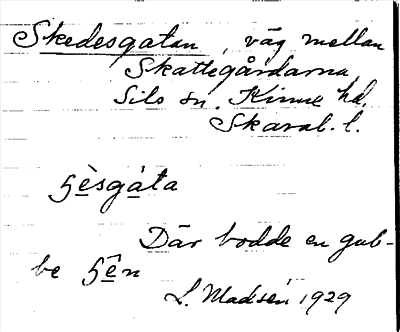 Skedesgatan, väg mellan
Skattegårdarna,
Sils sn. Kinne hd.
Skarab. l.
ꞔèsgáta
Där bodde en gub-
be ꞔên
L. Madsén 1929